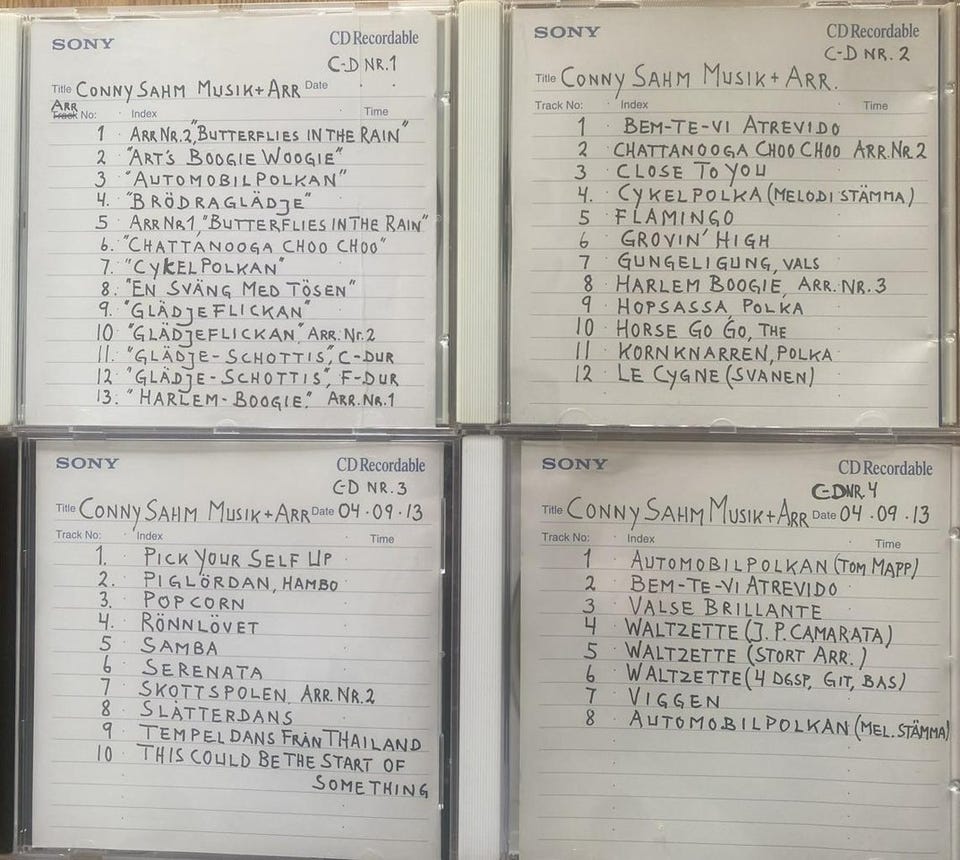 SONY CD Recordable
C-D NR.1
Title CONNY SAHM MUSIK + ARR Date
ARR
Track No: Index Time
1 ARR NR.2, "BUTTERFLIES IN THE RAIN"
2 "ART'S BOOGIE WOOGIE"
3 "AUTOMOBILPOLKAN"
4. "BRÖDRAGLÄDJE"
5 ARR NR1, "BUTTERFLIES IN THE RAIN"
6. "CHATTANOOGA CHOO CHOO"
7. "CYKELPOLKAN"
8. "EN SVÄNG MED TÖSEN"
9. "GLÄDJEFLICKAN"
10 "GLÄDJEFLICKAN", ARR. Nr.2
11. "GLÄDJE-SCHOTTIS", C-DUR
12 "GLÄDJE-SCHOTTIS", F-DUR
13. "HARLEM-BOOGIE." ARR.NR.1
SONY CD Recordable
C-D NR. 2
Title CONNY SAHM MUSIK + ARR.
Track No: Index Time
1 BEM-TE-VI ATREVIDO
2 CHATTANOOGA CHOO CHOO ARR.NR.2
3 CLOSE TO YOU
4. CYKELPOLKA (MELODI STÄMMA)
5 FLAMINGO
6 GROVIN' HIGH
7 GUNGELIGUNG, VALS
8 HARLEM BOOGIE, ARR. NR. 3
9 HOPSASSA, POLKA
10 HORSE GO GO, THE
11 KORNKNARREN, POLKA
12 LE CYGNE (SVANEN)
SONY CD Recordable
C-D NR. 3
Title CONNY SAHM MUSIK + ARR Date 04.09.13
Track No: Index Time
1. PICK YOUR SELF UP
2. PIGLÖRDAN, HAMBO
3. POPCORN
4. RÖNNLÖVET
5 SAMBA
6 SERENATA
7 SKOTTSPOLEN, ARR.NR.2
8 SLÅTTERDANS
9 TEMPELDANS FRÅN THAILAND
10 THIS COULD BE THE START OF
SOMETHING
SONY CD Recordable
C-D NR. 4
Title CONNY SAHM MUSIK + ARR Date 04.09.13
Track No: Index Time
1 AUTOMOBILPOLKAN (TOM MAPP)
2 BEM-TE-VI ATREVIDO
3 VALSE BRILLANTE
4 WALTZETTE (J. P. CAMARATA)
5 WALTZETTE (STORT ARR.)
6 WALTZETTE (4 DGSP, GIT, BAS)
7 VIGGEN
8 AUTOMOBILPOLKAN (MEL. STÄMMA)